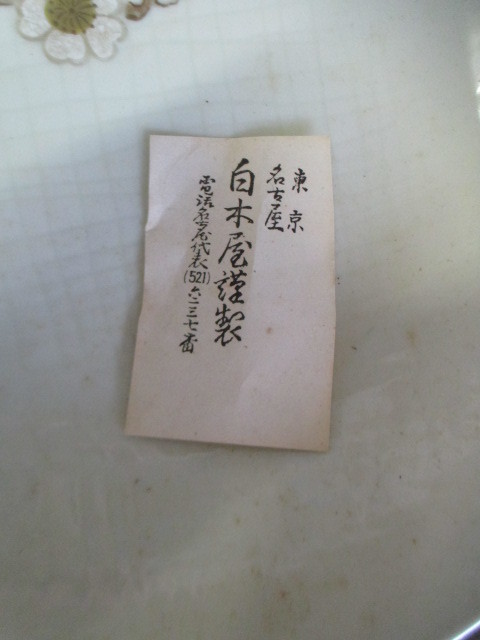 東京
名古屋
白木屋謹製
電話名古屋代表(521)六二三七番